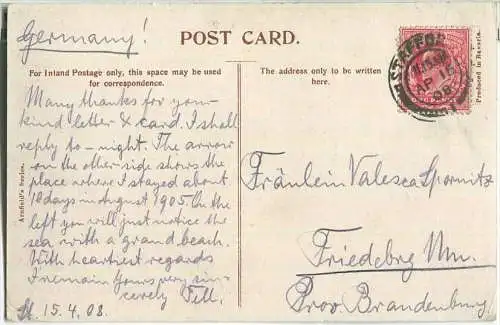 Germany!
POST CARD.
For Inland Postage only, this space may be used
for correspondence.
The address only to be written
here.
Many thanks for your
kind letter & card. I shall
reply to-night. The arrow
on the other side shows the
place where I stayed about
10 days in August 1905. On the
left you will just notice the
sea with a grand beach.
With heartiest regards
I remain Yours very sin-
cerely Fell.
15.4.08.
Fräulein Valesca Spornitz
Friedebrg Nm.
Prov. Brandenburg.
STAFFORD
AP 15
08
Produced in Bavaria.